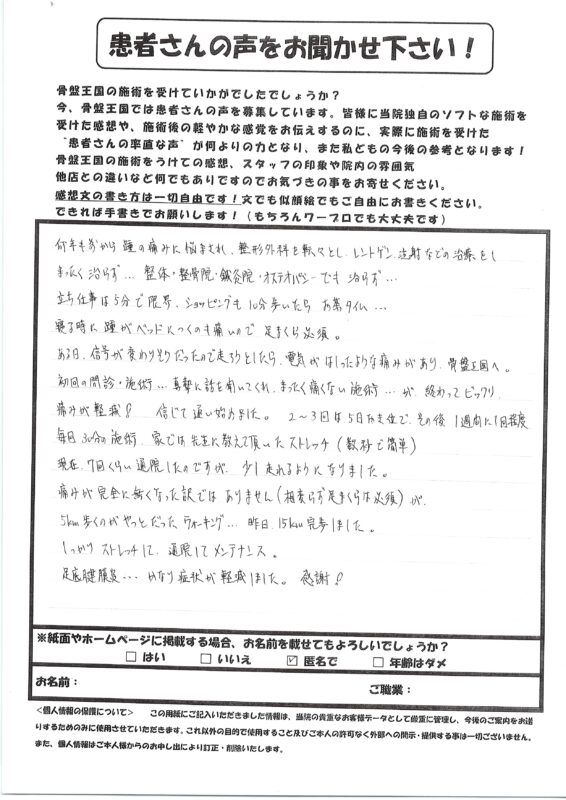 患者さんの声をお聞かせ下さい！
骨盤王国の施術を受けていかがでしたでしょうか？
今、骨盤王国では患者さんの声を募集しています。皆様に当院独自のソフトな施術を
受けた感想や、施術後の軽やかな感覚をお伝えするのに、実際に施術を受けた
“患者さんの率直な声”が何よりの力となり、また私どもの今後の参考となります！
骨盤王国の施術をうけての感想、スタッフの印象や院内の雰囲気
他店との違いなど何でもありですのでお気づきの事をお寄せください。
感想文の書き方は一切自由です！文でも似顔絵でもご自由にお書きください。
できれば手書きでお願いします！（もちろんワープロでも大丈夫です）
何年も前から 踵の痛みに悩まされ、整形外科を転々とし、レントゲン、注射などの治療をし
まったく治らず… 整体・整骨院・鍼灸院・オステオパシーでも 治らず…
立ち仕事は5分で限界、ショッピングも10分歩いたら お茶タイム…
寝る時に 踵がベッドにつくのも痛いので 足まくら必須。
ある日、信号が変わりそうだったので走ろうとしたら、電気がはしったような痛みがあり、骨盤王国へ。
初回の問診・施術… 真摯に話を聞いてくれ、まったく痛くない施術…が、終わってビックリ
痛みが軽減！ 信じて通い始めました。 2〜3回は5日 その後 1週間に1回程度
毎回 30分の施術、家では先生に教えて頂いた ストレッチ（数秒で簡単）
現在、7回くらい通院したのですが、少し走れるようになりました。
痛みが完全に無くなった訳では ありません（相変らず足まくらは必須）が、
5km歩くのがやっとだった ウォーキング… 昨日、15km完歩しました。
しっかり ストレッチして、通院して メンテナンス。
足底腱膜炎… かなり症状が軽減しました。 感謝！
※紙面やホームページに掲載する場合、お名前を載せてもよろしいでしょうか？
□ はい □ いいえ ☑ 匿名で □ 年齢はダメ
お名前： ご職業：
＜個人情報の保護について＞ この用紙にご記入いただきました情報は、当院の貴重なお客様データとして厳重に管理し、今後のご案内をお送
りするためのみに使用させていただきます。これ以外の目的で使用すること及びご本人の許可なく外部への開示・提供する事は一切ございません。
また、個人情報はご本人様からのお申し出により訂正・削除いたします。